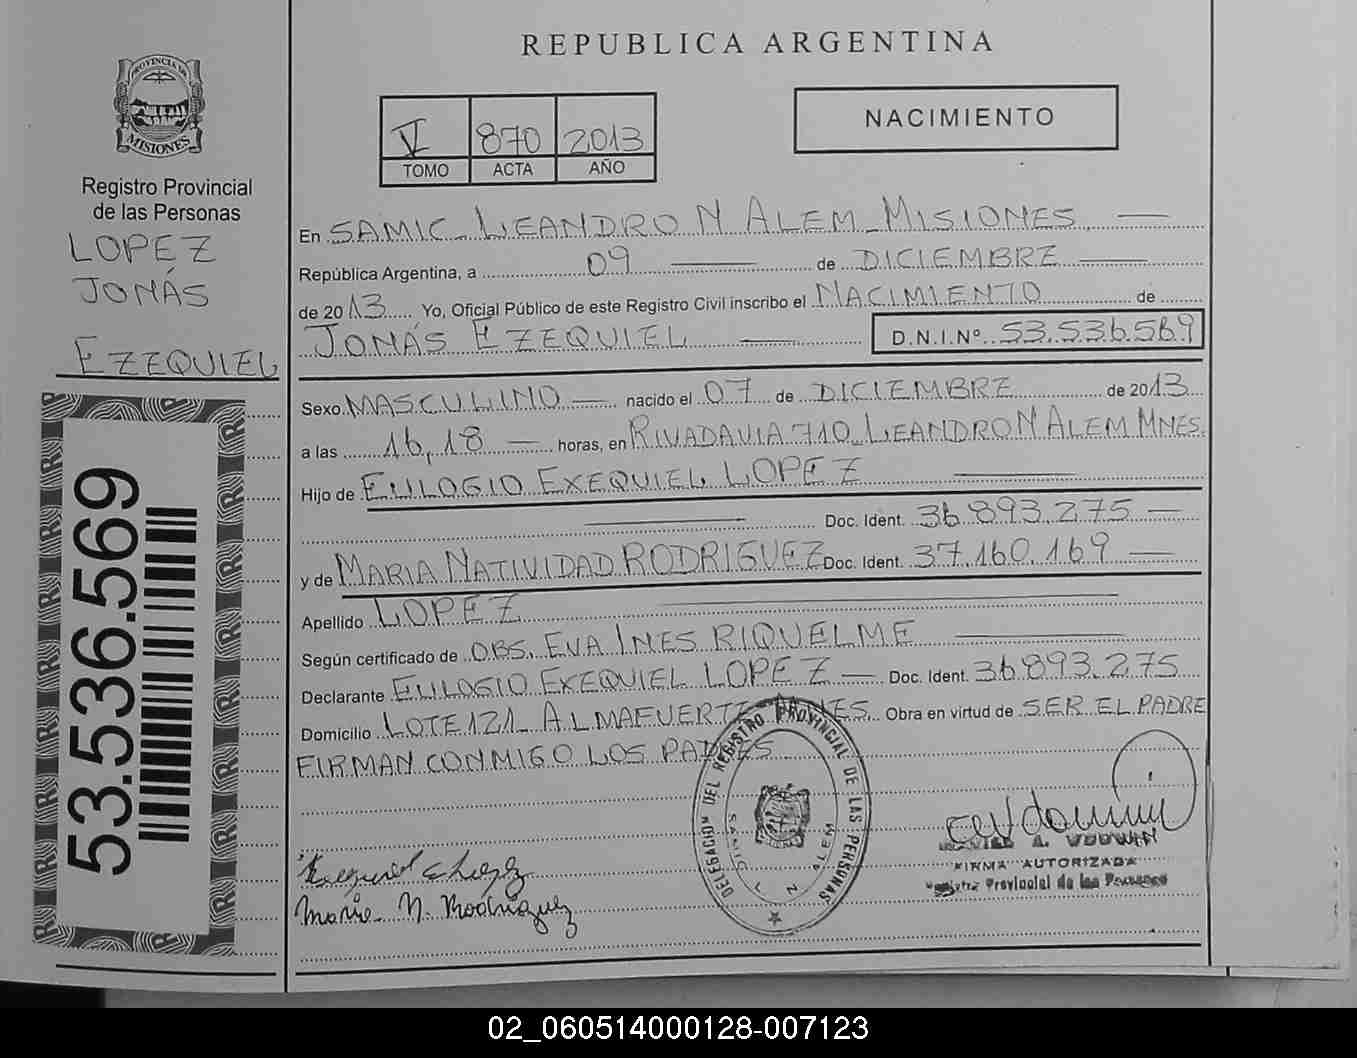 REPUBLICA ARGENTINA
PROVINCIA DE
MISIONES
Registro Provincial
de las Personas
LOPEZ
JONÁS
EZEQUIEL
53.536.569
V 870 2013
TOMO ACTA AÑO
NACIMIENTO
En SAMIC LEANDRO N ALEM MISIONES
República Argentina, a 09 de DICIEMBRE
de 2013 Yo, Oficial Público de este Registro Civil inscribo el NACIMIENTO de
JONÁS EZEQUIEL D.N.I.Nº 53.536.569
Sexo MASCULINO nacido el 07 de DICIEMBRE de 2013
a las 16,18 horas, en RIVADAVIA 710 LEANDRO N ALEM MNES.
Hijo de EULOGIO EXEQUIEL LOPEZ
Doc. Ident. 36 893.275
y de MARIA NATIVIDAD RODRIGUEZ Doc. Ident. 37.160.169
Apellido LOPEZ
Según certificado de OBS. EVA INES RIQUELME
Declarante EULOGIO EXEQUIEL LOPEZ Doc. Ident. 36 893.275
Domicilio LOTE 121 ALMAFUERTE MNES Obra en virtud de SER EL PADRE
FIRMAN CONMIGO LOS PADRES
DELEGACION DEL REGISTRO PROVINCIAL DE LAS PERSONAS
SAMIC L N ALEM
A.
FIRMA AUTORIZADA
Registro Provincial de las Personas
Exequiel E Lopez
Maria N. Rodriguez
02_060514000128-007123